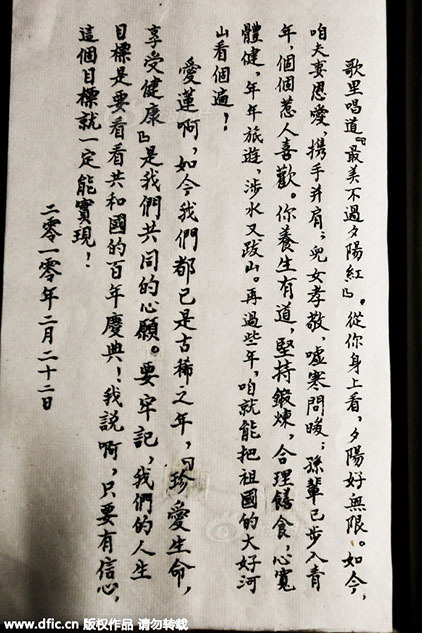 歌里唱道『最美不過夕陽紅』。從你身上看，夕陽好無限。如今，
咱夫妻恩愛，携手并肩；兒女孝敬，噓寒問暖；孫輩已步入青
年，個個惹人喜歡。你養生有道，堅持鍛煉，合理饍食，心寬
體健，年年旅遊，涉水又跋山。再過些年，咱就能把祖國的大好河
山看個遍！
愛蓮啊，如今我們都已是古稀之年，『珍愛生命，
享受健康』是我們共同的心願。要牢記，我們的人生
目標是要看看共和國的百年慶典！我説啊，只要有信心，
這個目標就一定能實現！
二零一零年二月二十二日
www.dfic.cn 版权作品 请勿转载